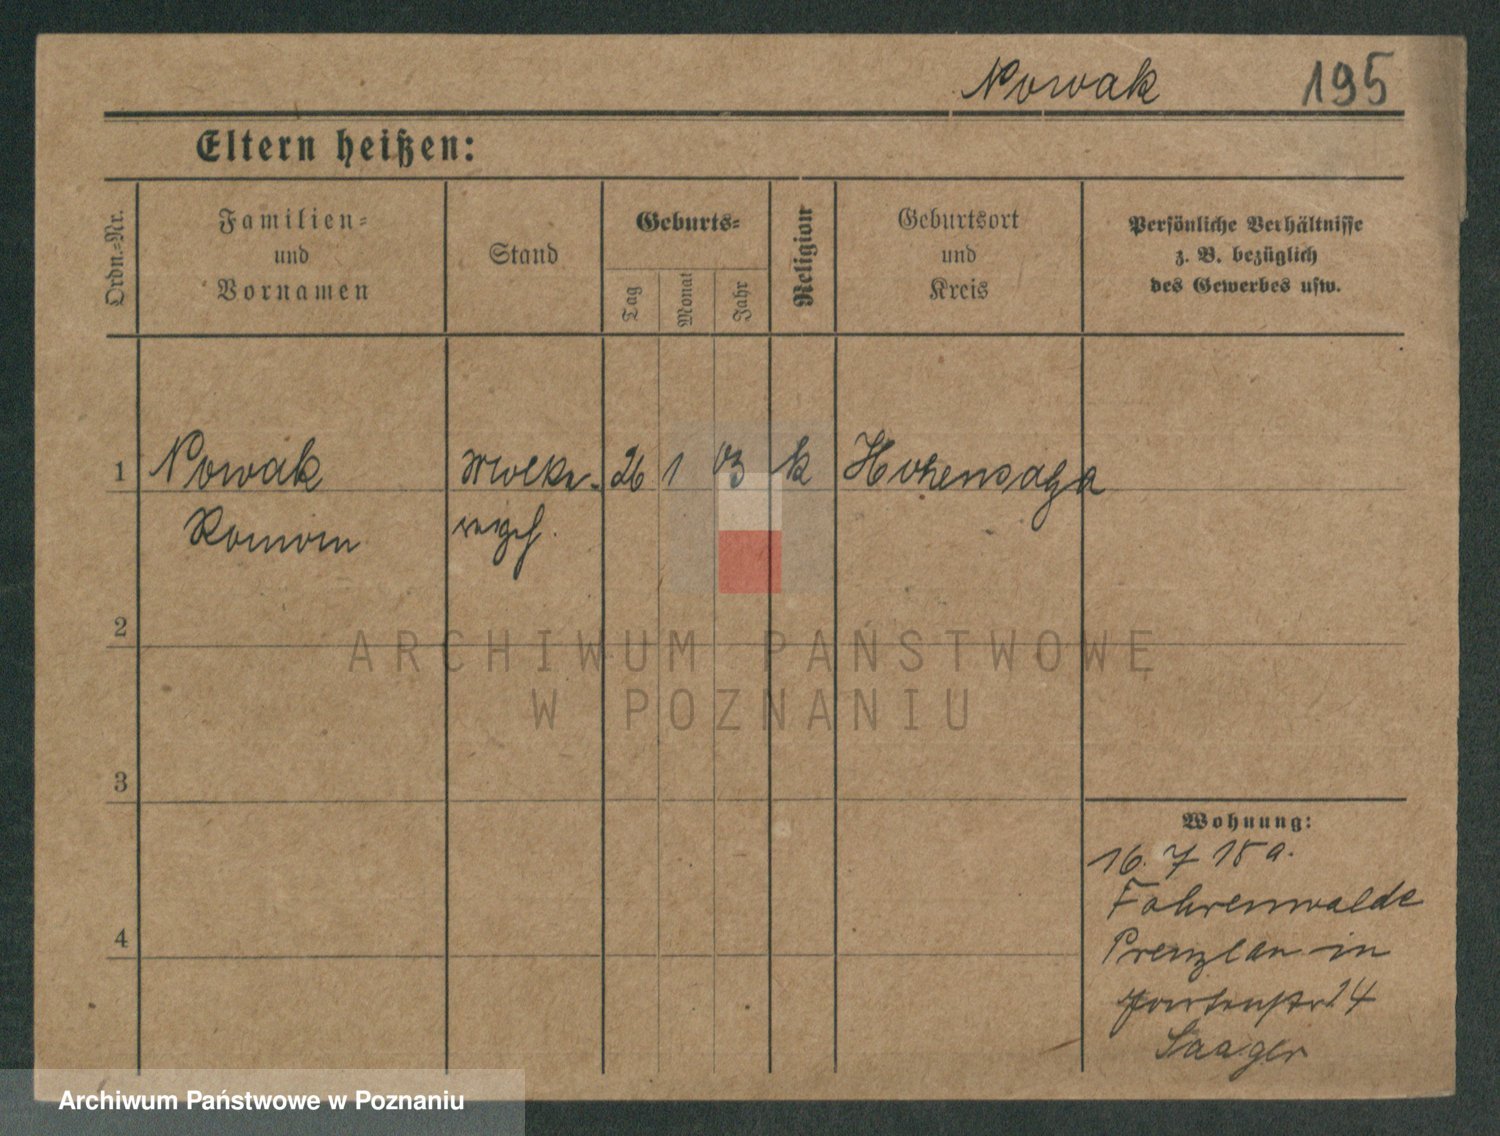 Nowak 195
Eltern heißen:
Ordn.-Nr.
Familien-
und
Vornamen
Stand
Geburts-
Tag
Monat
Jahr
Religion
Geburtsort
und
Kreis
Persönliche Verhältnisse
z. B. bezüglich
des Gewerbes usw.
1 Nowak Molke- 26 1 03 k Hohensalza
Roman
2
3
4
Wohnung:
16. 7 18 a.
Fahrenwalde
Prenzlau in
24
Saager
ARCHIWUM PAŃSTWOWE
W POZNANIU
Archiwum Państwowe w Poznaniu